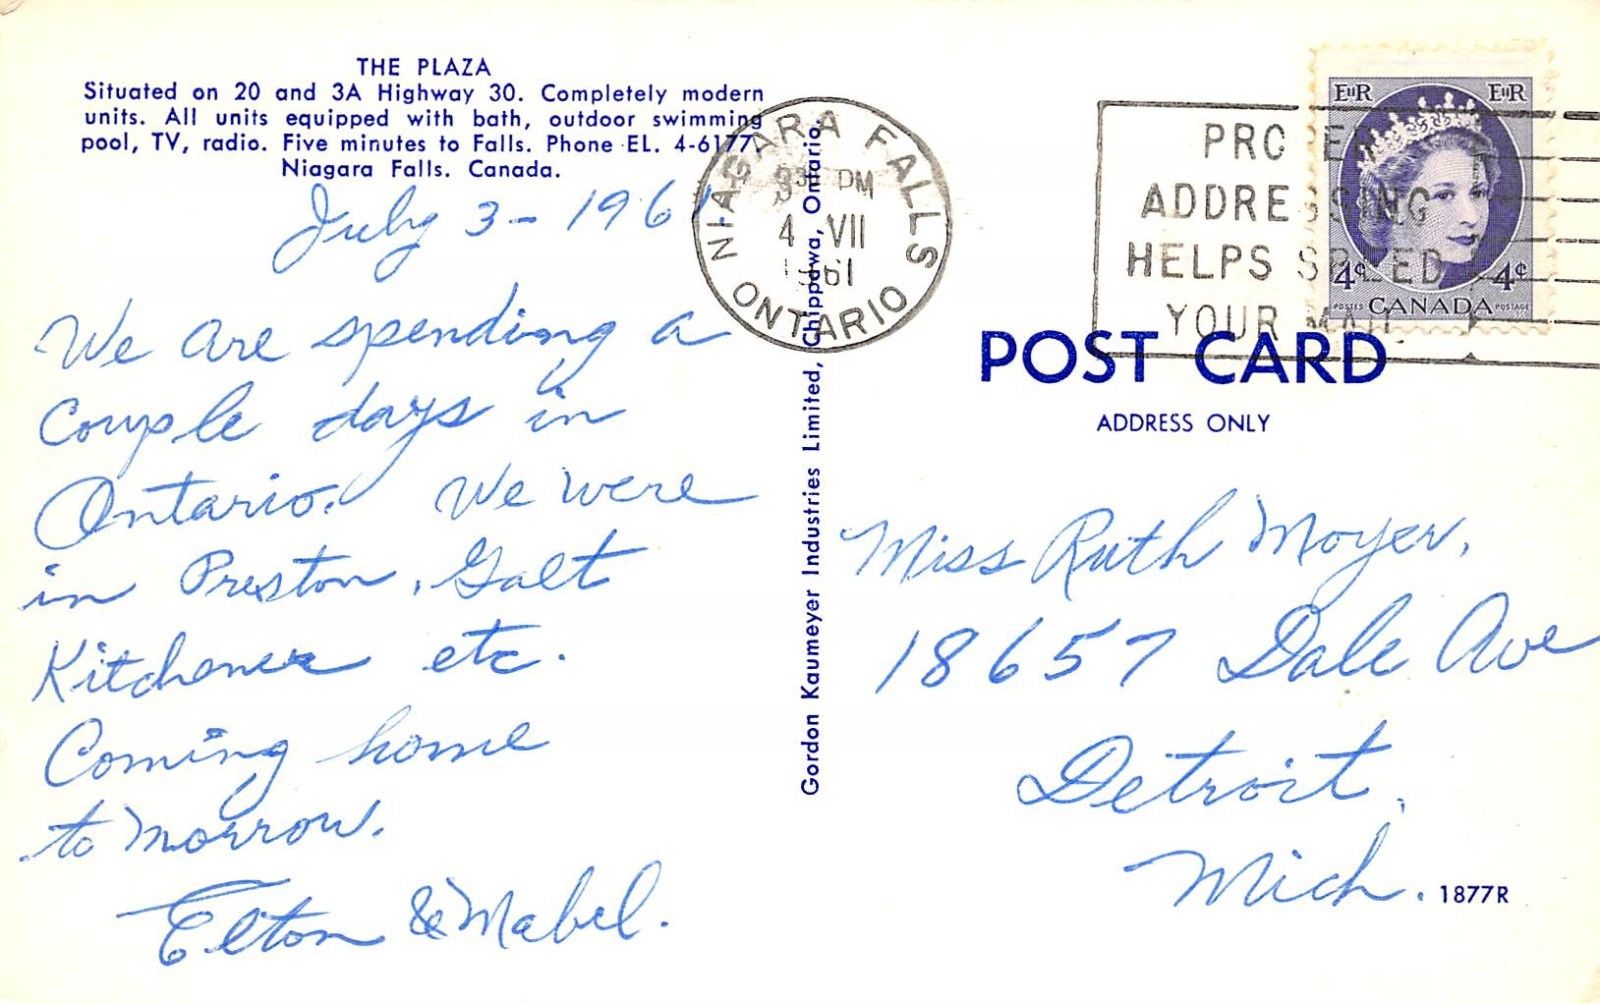 THE PLAZA
Situated on 20 and 3A Highway 30. Completely modern
units. All units equipped with bath, outdoor swimming
pool, TV, radio. Five minutes to Falls. Phone EL. 4-6177.
Niagara Falls. Canada.
July 3 - 1961
We are spending a
couple days in
Ontario. We were
in Preston, Galt
Kitchener etc.
Coming home
to morrow.
Elton & Mabel.
Gordon Kaumeyer Industries Limited, Chippawa, Ontario.
NIAGARA FALLS
PM
4 VII
1961
ONTARIO
PROPER
ADDRESSING
HELPS SPEED
YOUR MAIL
EIIR EIIR
4¢ 4¢
POSTES CANADA POSTAGE
POST CARD
ADDRESS ONLY
Miss Ruth Moyer,
18657 Dale Ave
Detroit,
Mich.
1877R